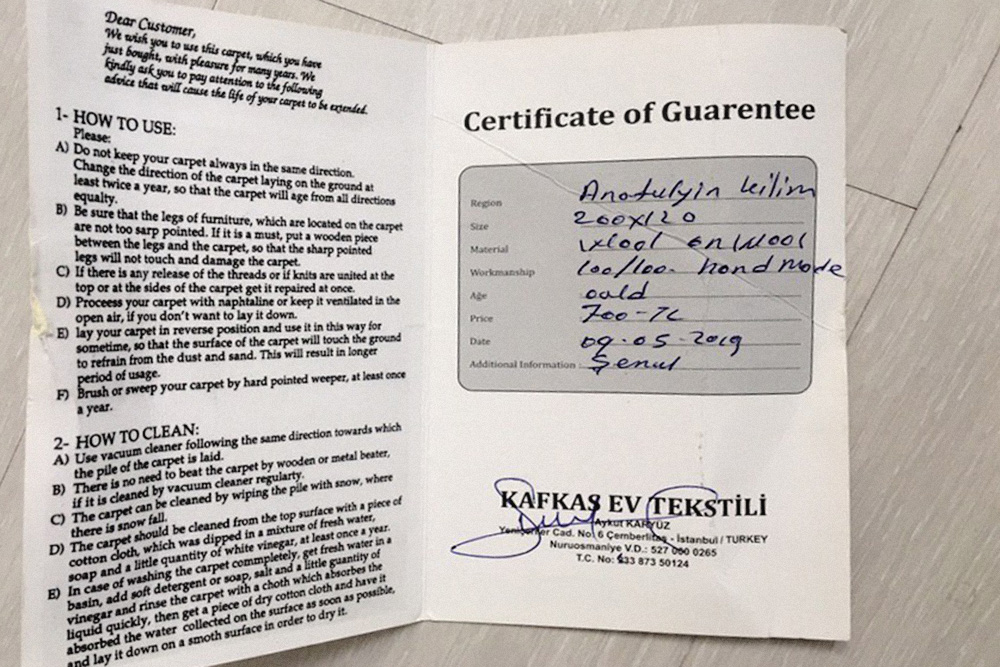 Dear Customer,
We wish you to use this carpet, which you have
just bought, with pleasure for many years. We
kindly ask you to pay attention to the following
advice that will cause the life of your carpet to be extended.
1- HOW TO USE:
Please:
A) Do not keep your carpet always in the same direction.
Change the direction of the carpet laying on the ground at
least twice a year, so that the carpet will age from all directions
equalty.
B) Be sure that the legs of furniture, which are located on the carpet
are not too sarp pointed. If it is a must, put a wooden piece
between the legs and the carpet, so that the sharp pointed
legs will not touch and damage the carpet.
C) If there is any release of the threads or if knits are united at the
top or at the sides of the carpet get it repaired at once.
D) Proceess your carpet with naphtaline or keep it ventilated in the
open air, if you don't want to lay it down.
E) lay your carpet in reverse position and use it in this way for
sometime, so that the surface of the carpet will touch the ground
to refrain from the dust and sand. This will result in longer
period of usage.
F) Brush or sweep your carpet by hard pointed weeper, at least once
a year.
2- HOW TO CLEAN:
A) Use vacuum cleaner following the same direction towards which
the pile of the carpet is laid.
B) There is no need to beat the carpet by wooden or metal beater,
if it is cleaned by vacuum cleaner regularty.
C) The carpet can be cleaned by wiping the pile with snow, where
there is snow fall.
D) The carpet should be cleaned from the top surface with a piece of
cotton cloth, which was dipped in a mixture of fresh water,
soap and a little quantity of white vinegar, at least once a year.
E) In case of washing the carpet commpletely, get fresh water in a
basin, add soft detergent or soap, salt and a little guantity of
vinegar and rinse the carpet with a choth which absorbes the
liquid quickly, then get a piece of dry cotton cloth and have it
absorbed the water collected on the surface as soon as possible,
and lay it down on a smoth surface in order to dry it.
Certificate of Guarentee
Region Anatulyin kilim
Size 200x120
Material Wool on Wool
Workmanship 100/100. hand made
Age oald
Price 700-TL
Date 09.05.2019
Additional Information : Şenul
KAFKAS EV TEKSTİLİ
Aykut KARYÜZ
Yeniçeriler Cad. No: 6 Çemberlitaş - İstanbul / TURKEY
Nuruosmaniye V.D.: 527 000 0265
T.C. No: 233 873 50124